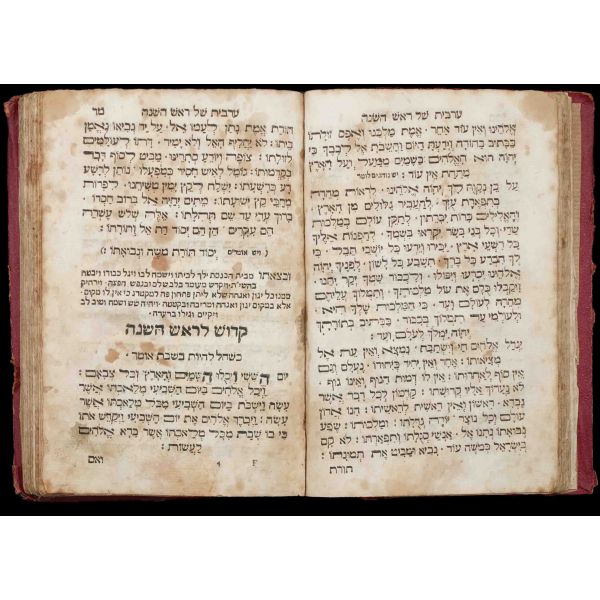 ערבית של ראש השנה
אלהינו ואין עוד אחר · אמת מלכנו ואפס זולתו
ככתוב בתורה וידעת היום והשבות אל לבבך כי
יהוה הוא האלהים בשמים ממעל ועל הארץ
מתחת אין עוד :
על כן נקוה לך יהוה אלהינו · לראות מהרה
בתפארת עזך · להעביר גלולים מן הארץ ·
והאלילים כרות יכרתון · לתקן עולם במלכות
שדי · וכל בני בשר יקראו בשמך · להפנות אליך
כל רשעי ארץ · יכירו וידעו כל יושבי תבל · כי
לך תכרע כל ברך · תשבע כל לשון · לפניך יהוה
אלהינו יכרעו ויפולו · ולכבוד שמך יקר יתנו ·
ויקבלו כלם את עול מלכותך · ותמלוך עליהם
מהרה לעולם ועד · כי המלכות שלך היא ·
ולעולמי עד תמלוך בכבוד · ככתוב בתורתך
יהוה ימלך לעלם ועד :
יגדל אלהים חי וישתבח · נמצא ואין עת אל
מציאותו : אחד ואין יחיד כיחודו · נעלם וגם
אין סוף לאחדותו : אין לו דמות הגוף ואינו גוף ·
לא נערוך אליו קדושתו : קדמון לכל דבר אשר
נברא · ראשון ואין ראשית לראשיתו : הנו אדון
עולם וכל נוצר · יורה גדולתו ומלכותו : שפע
נבואתו נתנו אל · אנשי סגולתו ותפארתו : לא קם
בישראל כמשה עוד · נביא ומביט את תמונתו :
תורת
ערבית של ראש השנה מר
תורת אמת נתן לעמו אל · על יד נביאו נאמן
ביתו : לא יחליף האל ולא ימיר · דתו לעולמים
לזולתו : צופה ויודע סתרינו · מביט לסוף דבר
בקדמותו : גומל לאיש חסיד כמפעלו · נותן לרשע
רע כרשעתו : ישלח לקץ ימין משיחנו · לפדות
מחכי קץ ישועתו : מתים יחיה אל ברוב חסדו ·
ברוך עדי עד שם תהלתו : אלה שלש עשרה
הם עקרים · הן הם יסוד דת אל ותורתו :
( ויש אומרים יסוד תורת משה ונבואתו : )
ובצאתו מבית הכנסת ילך לביתו וישמח לבו ויגל כבודו ויבטח
קדוש לראש השנה
כשחל להיות בשבת אומר ·
יום הששי ויכלו השמים והארץ וכל צבאם :
ויכל אלהים ביום השביעי מלאכתו אשר
עשה וישבת ביום השביעי מכל מלאכתו אשר
עשה : ויברך אלהים את יום השביעי ויקדש אתו
כי בו שבת מכל מלאכתו אשר ברא אלהים
לעשות :
F 4 ואם